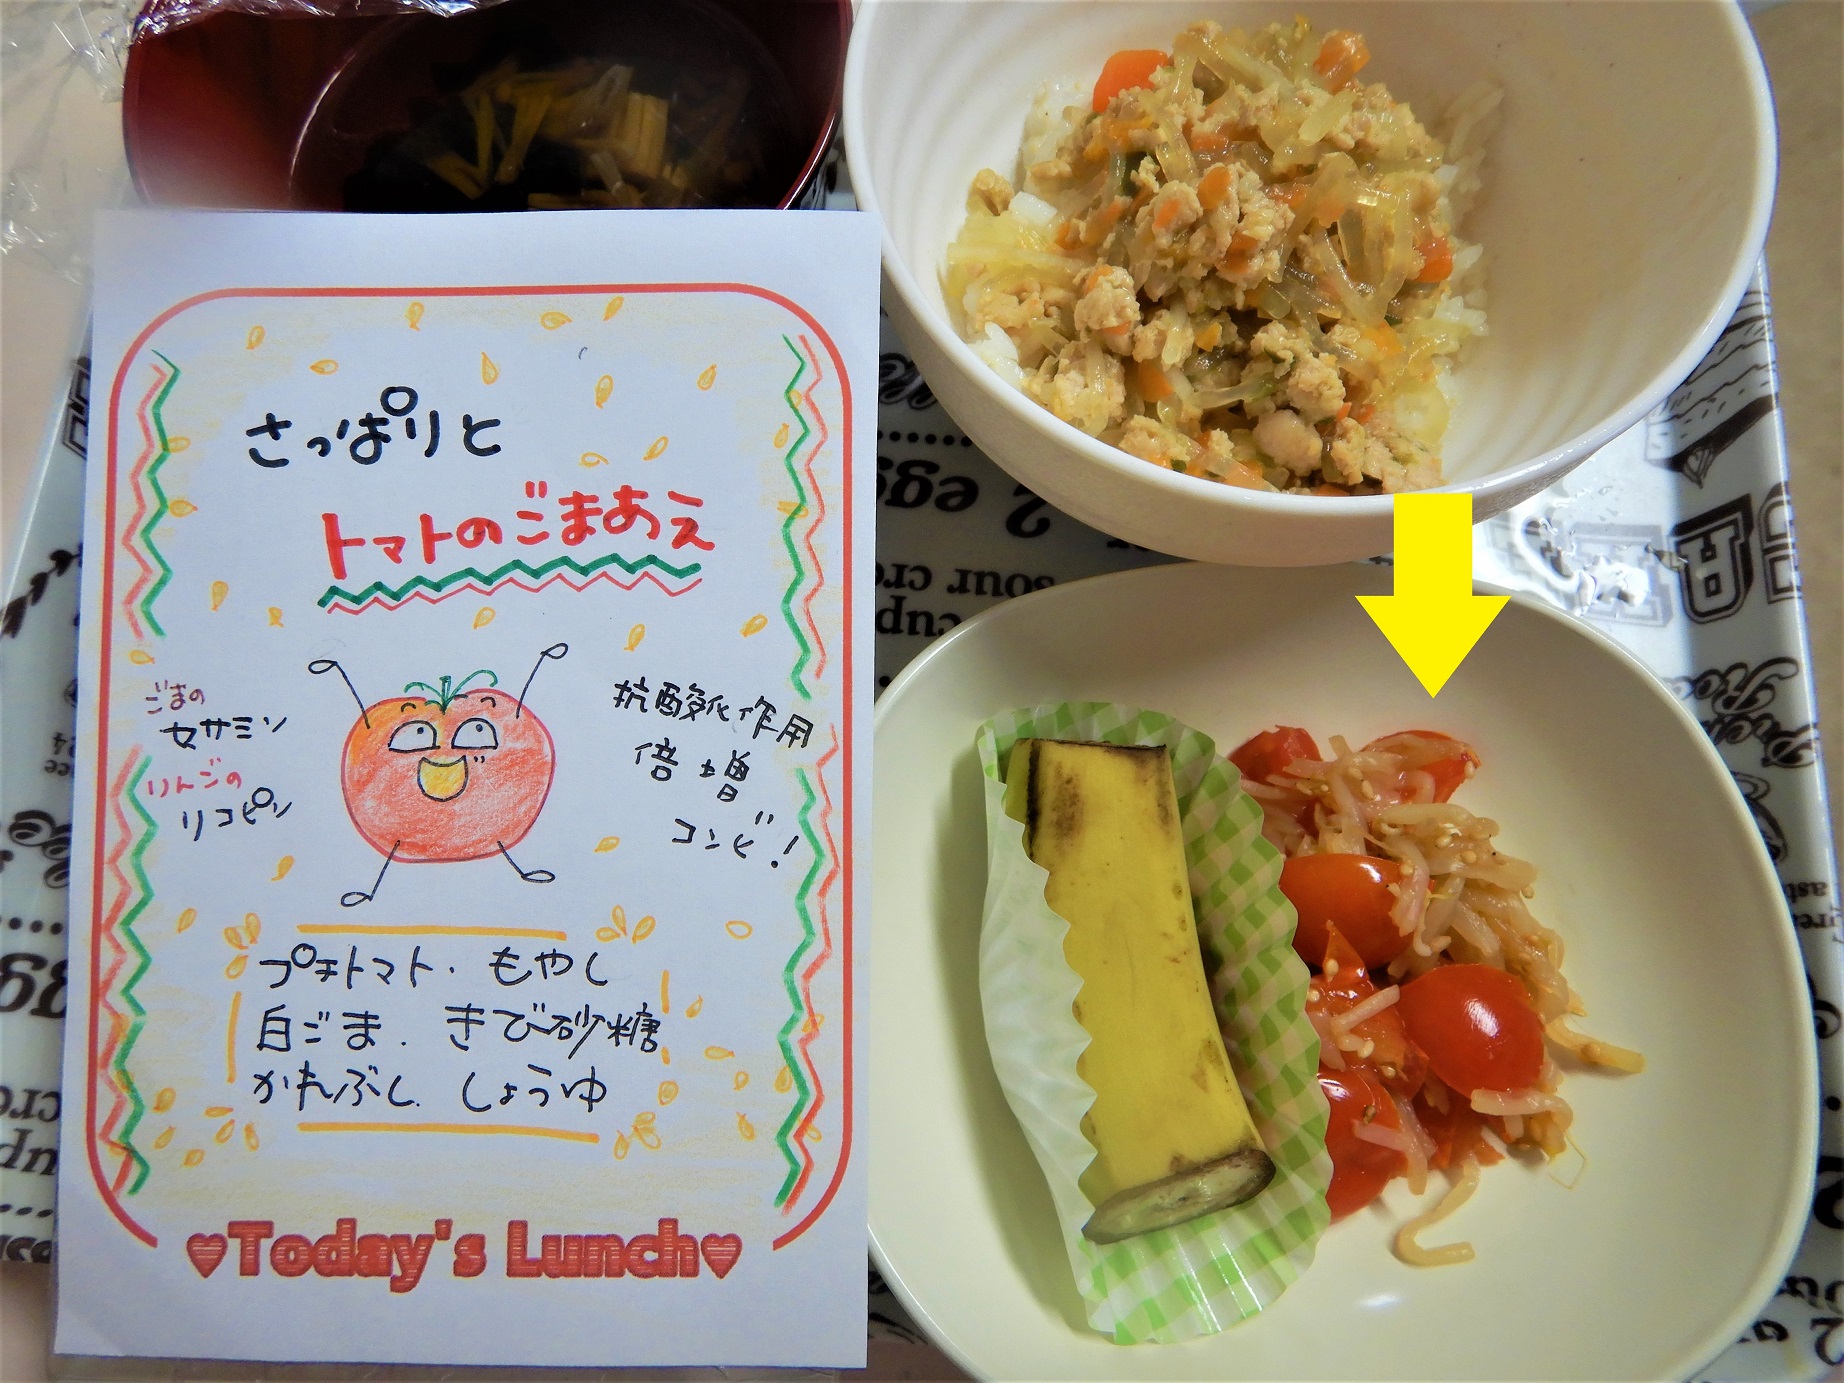 さっぱりと
トマトのごまあえ
ごまの
セサミン
りんごの
リコピン
抗酸化作用
倍増
コンビ!
プチトマト・もやし
白ごま．きび砂糖
かれぶし．しょうゆ
♥Today's Lunch♥
2 egg
sour cre
cup